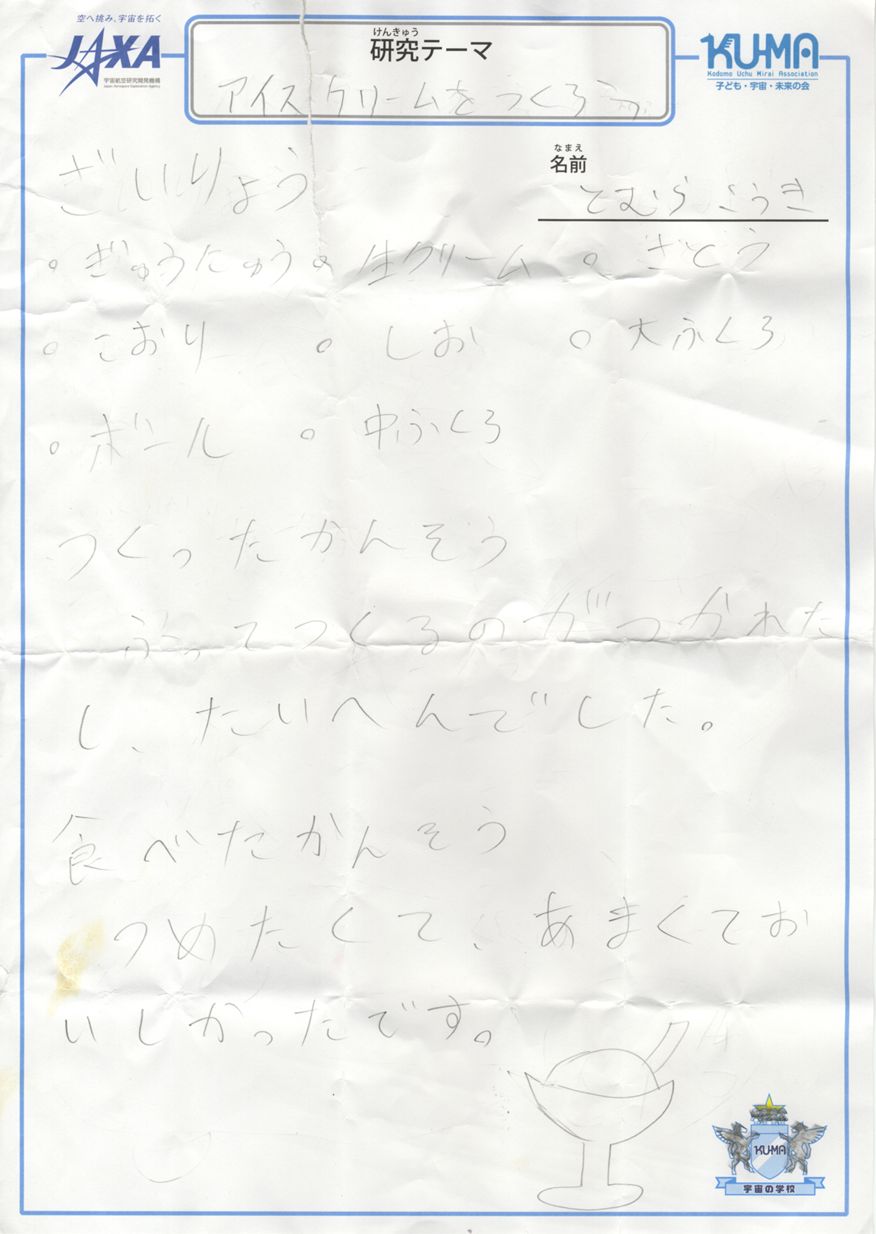 空へ挑み、宇宙を拓く
JAXA
宇宙航空研究開発機構
Japan Aerospace Exploration Agency
けんきゅう
研究テーマ
アイスクリームをつくろう
KU-MA
Kodomo Uchu Mirai Association
子ども・宇宙・未来の会
なまえ
名前
とむらこうき
ざいりょう
。ぎゅうにゅう 。生クリーム 。さとう
。こおり 。しお 。大ふくろ
。ボール 。中ふくろ
つくったかんそう
ふってつくるのがつかれた
し、たいへんでした。
食べたかんそう
つめたくて、あまくてお
いしかったです。
KU-MA
宇宙の学校